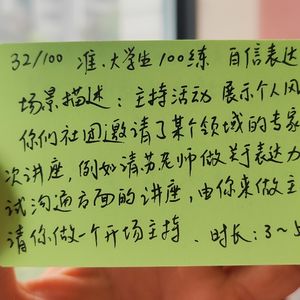 32/100 准大学生100练 自信表达
场景描述：主持活动 展示个人风
你们社团邀请了某个领域的专家
次讲座，例如请苏老师做关于表达力
试沟通方面的讲座，由你来做主
请你做一个开场主持、时长：3~5